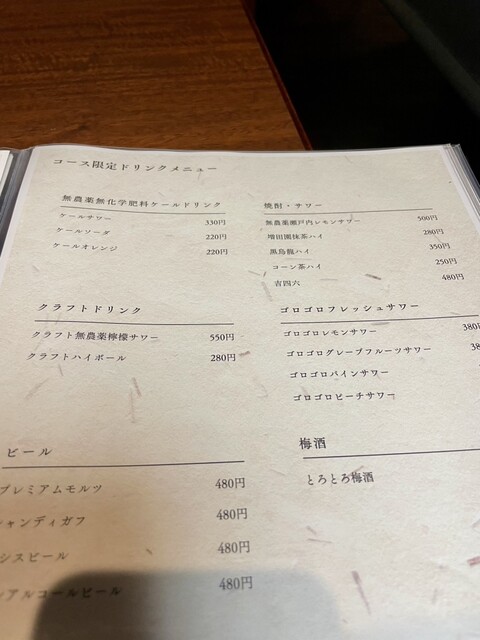 コース限定ドリンクメニュー
無農薬無化学肥料ケールドリンク
ケールサワー 330円
ケールソーダ 220円
ケールオレンジ 220円
クラフトドリンク
クラフト無農薬檸檬サワー 550円
クラフトハイボール 280円
ビール
プレミアムモルツ 480円
ャンディガフ 480円
シスビール 480円
アルコールビール 480円
焼酎・サワー
無農薬瀬戸内レモンサワー 500円
増田園抹茶ハイ 280円
黒烏龍ハイ 350円
コーン茶ハイ 250円
吉四六 480円
ゴロゴロフレッシュサワー
ゴロゴロレモンサワー 380
ゴロゴログレープフルーツサワー 38
ゴロゴロパインサワー
ゴロゴロピーチサワー
梅酒
とろとろ梅酒